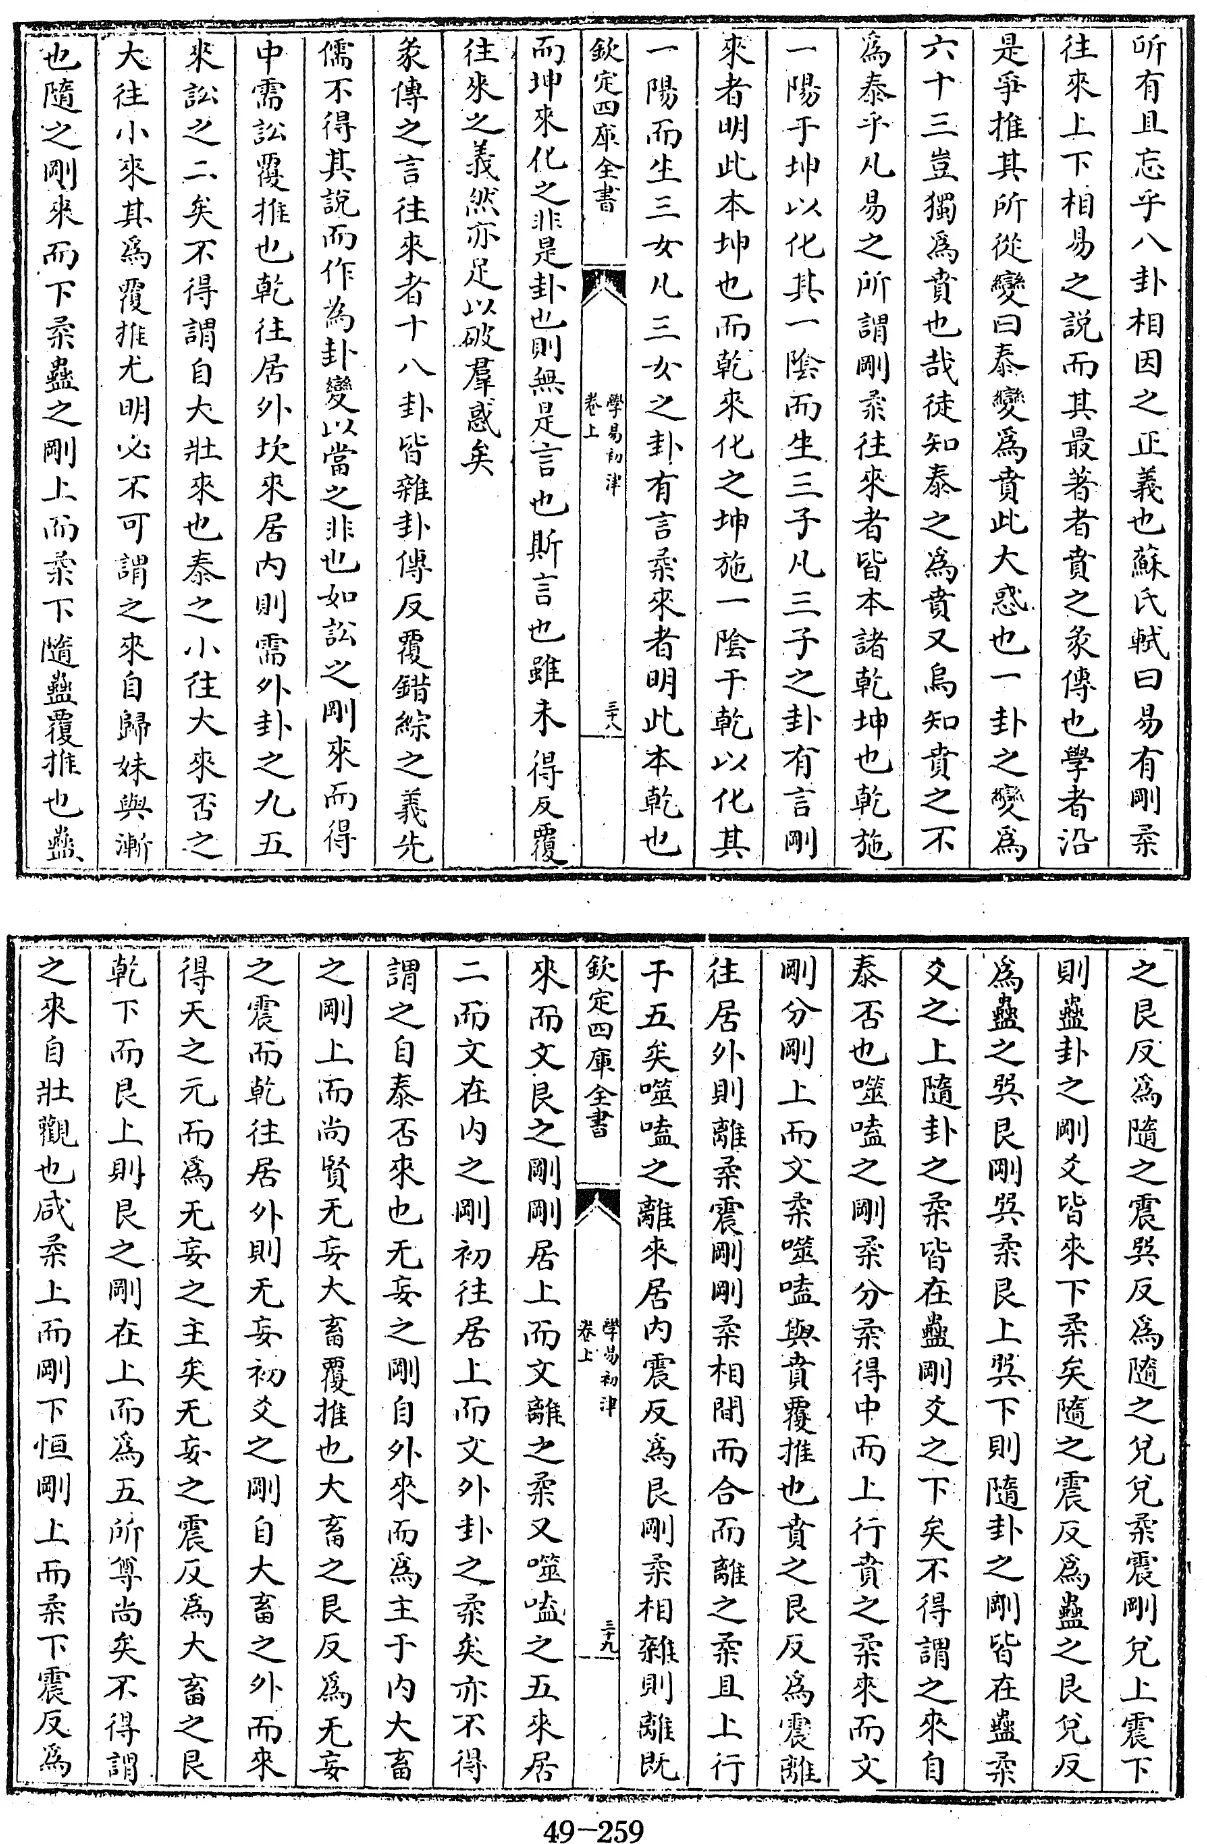 所有且忘乎八卦相因之正義也蘇氏軾曰易有剛柔
往來上下相易之說而其最著者賁之彖傳也學者沿
是爭推其所從變曰泰變為賁此大惑也一卦之變為
六十三豈獨為賁也哉徒知泰之為賁又烏知賁之不
為泰乎凡易之所謂剛柔往來者皆本諸乾坤也乾施
一陽于坤以化其一陰而生三子凡三子之卦有言剛
來者明此本坤也而乾來化之坤施一陰于乾以化其
一陽而生三女凡三女之卦有言柔來者明此本乾也
欽定四庫全書
學易初津
卷上
三十八
而坤來化之非是卦也則無是言也斯言也雖未得反覆
往來之義然亦足以破羣惑矣
彖傳之言往來者十八卦皆雜卦傳反覆錯綜之義先
儒不得其說而作為卦變以當之非也如訟之剛來而得
中需訟覆推也乾往居外坎來居内則需外卦之九五
來訟之二矣不得謂自大壯來也泰之小往大來否之
大往小來其為覆推尤明必不可謂之來自歸妹與漸
也隨之剛來而下柔蠱之剛上而柔下隨蠱覆推也蠱
之艮反為隨之震巽反為隨之兌兌柔震剛兌上震下
則蠱卦之剛爻皆來下柔矣隨之震反為蠱之艮兌反
為蠱之巽艮剛巽柔艮上巽下則隨卦之剛皆在蠱柔
爻之上隨卦之柔皆在蠱剛爻之下矣不得謂之來自
泰否也噬嗑之剛柔分柔得中而上行賁之柔來而文
剛分剛上而文柔噬嗑與賁覆推也賁之艮反為震離
往居外則離柔震剛剛柔相間而合而離之柔且上行
于五矣噬嗑之離來居内震反為艮剛柔相雜則離既
欽定四庫全書
學易初津
卷上
三十九
來而文艮之剛剛居上而文離之柔又噬嗑之五來居
二而文在内之剛初往居上而文外卦之柔矣亦不得
謂之自泰否來也无妄之剛自外來而為主于内大畜
之剛上而尚賢无妄大畜覆推也大畜之艮反為无妄
之震而乾往居外則无妄初爻之剛自大畜之外而來
得天之元而為无妄之主矣无妄之震反為大畜之艮
乾下而艮上則艮之剛在上而為五所尊尚矣不得謂
之來自壯觀也咸柔上而剛下恒剛上而柔下震反為
49-259